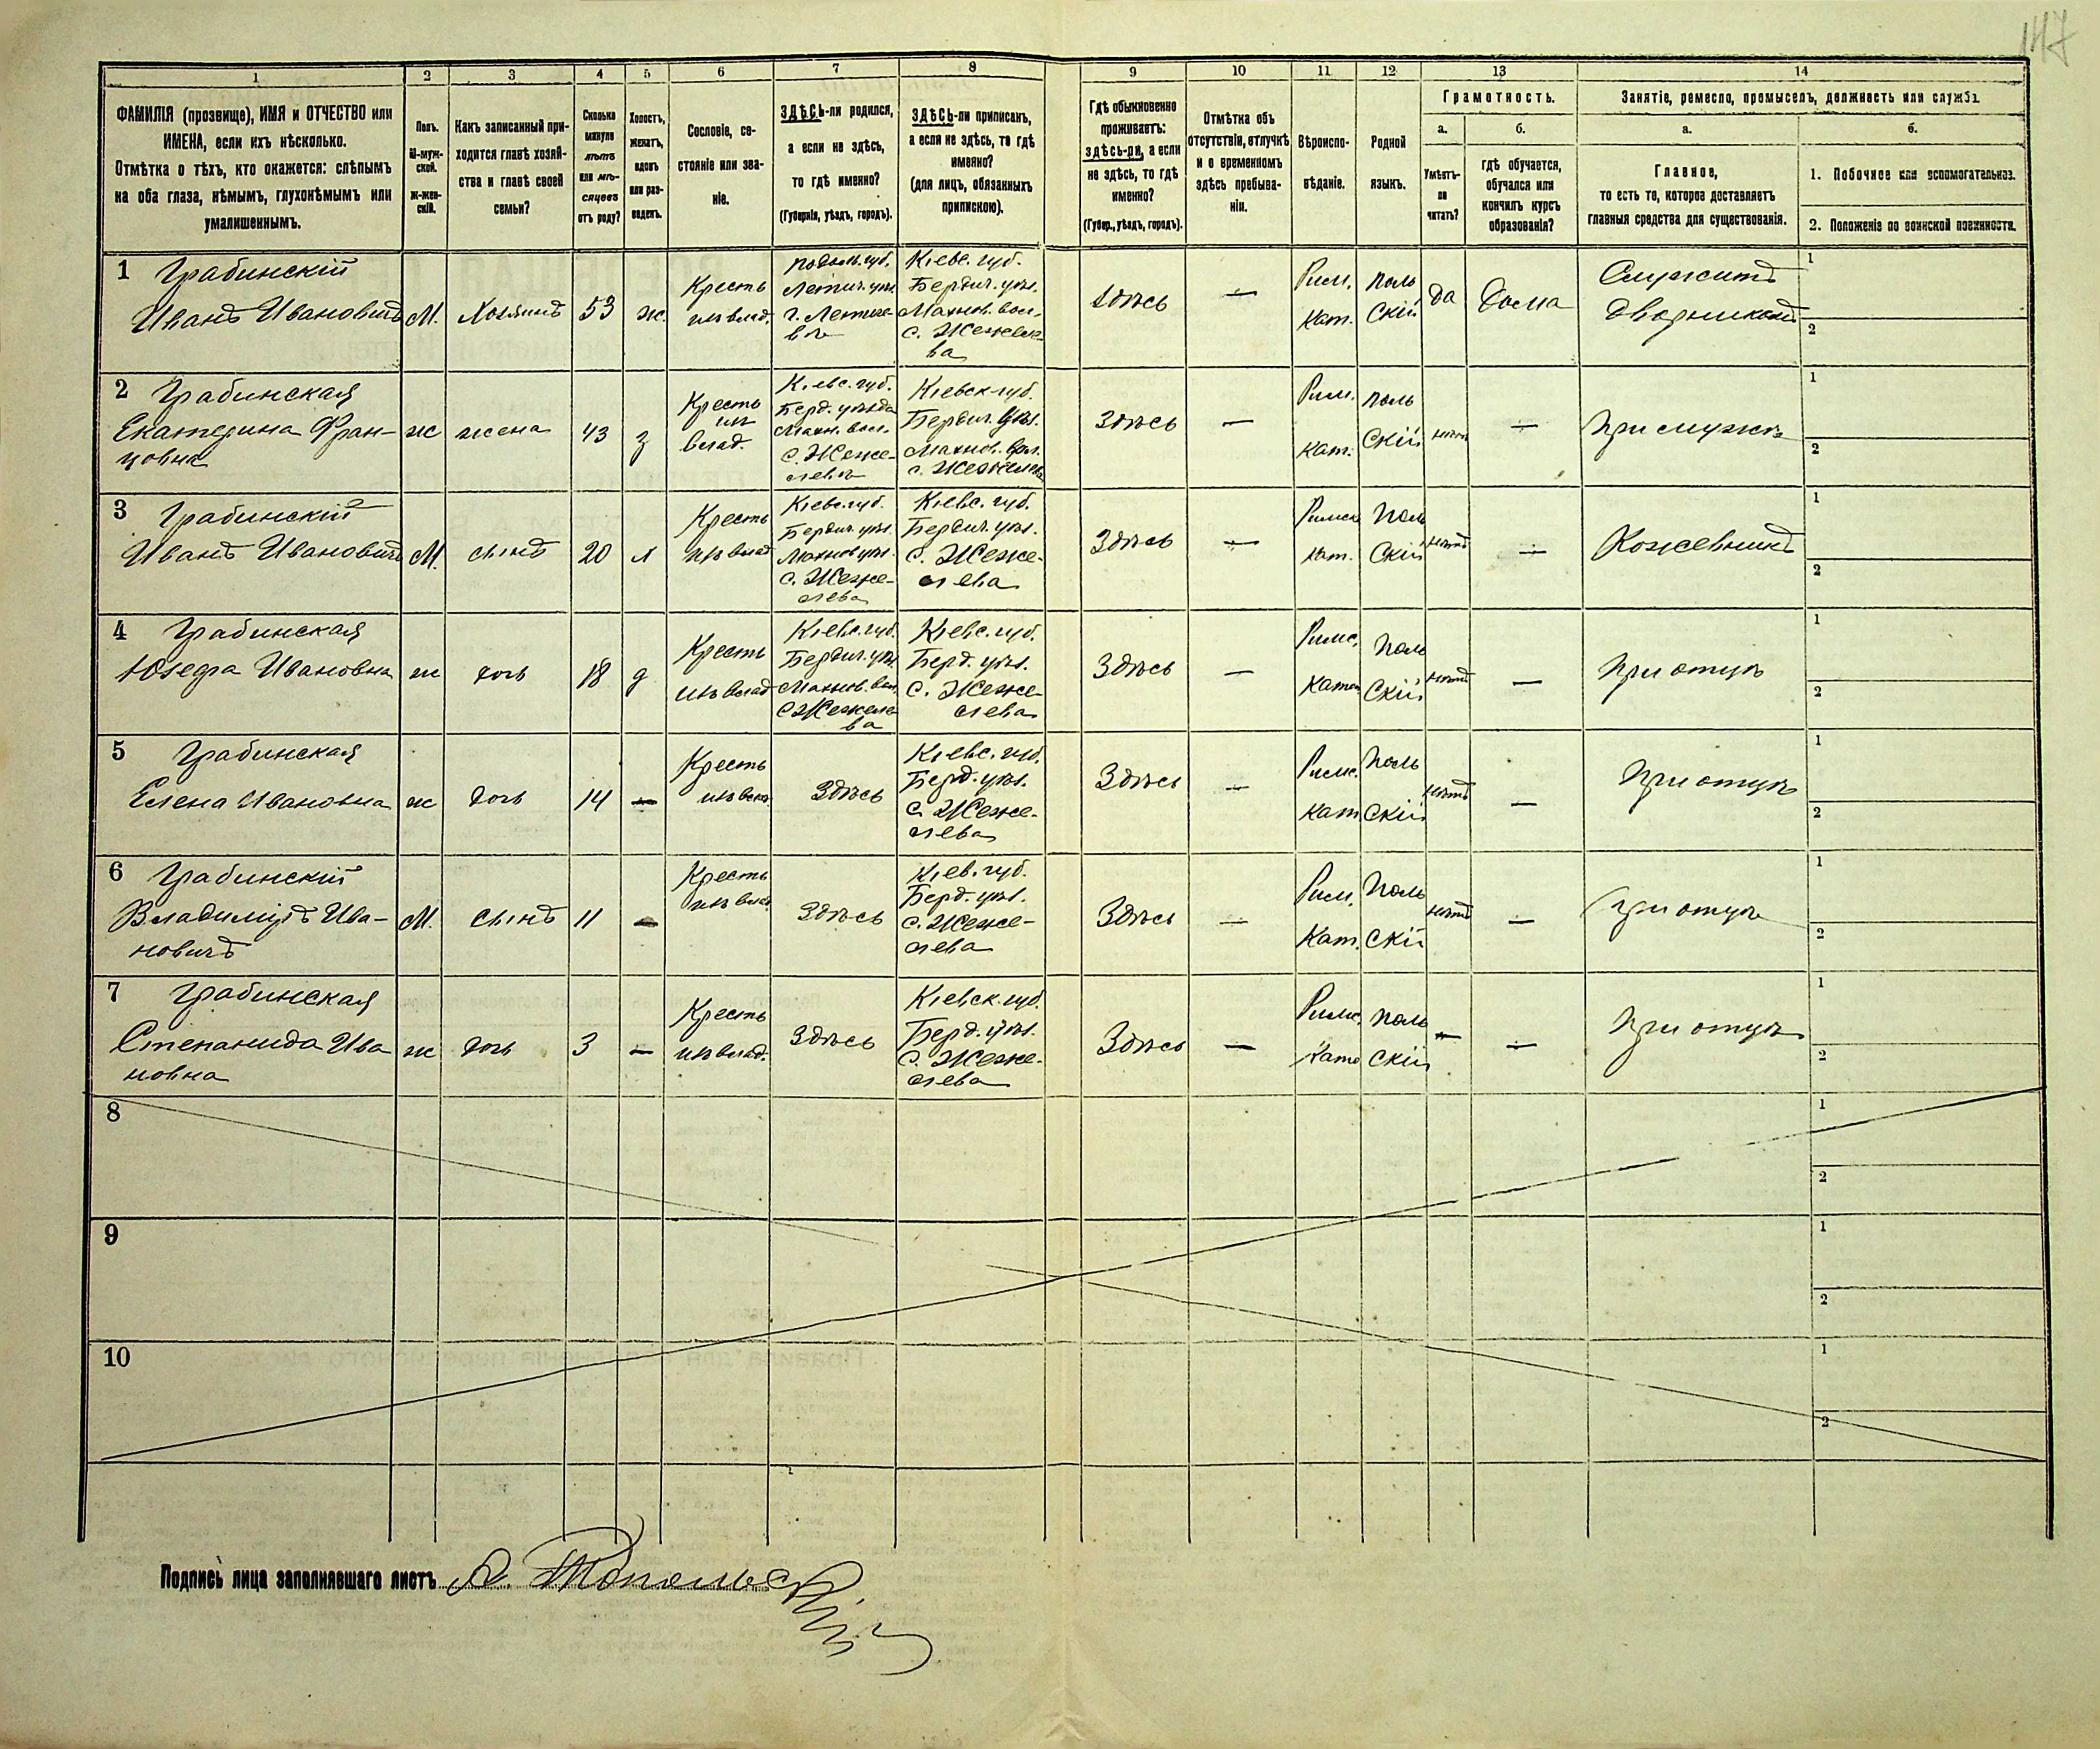 147
1 2 3 4 5 6 7 8 9 10 11 12 13 14
ФАМИЛІЯ (прозвище), ИМЯ и ОТЧЕСТВО или
ИМЕНА, если ихъ нѣсколько.
Отмѣтка о тѣхъ, кто окажется: слѣпымъ
на оба глаза, нѣмымъ, глухонѣмымъ или
умалишеннымъ.
Полъ.
М-муж-
ской.
ж-жен-
скій.
Какъ записанный при-
ходится главѣ хозяй-
ства и главѣ своей
семьи?
Сколько
минуло
лѣтъ
или мѣ-
сяцевъ
отъ роду?
Холостъ,
женатъ,
вдовъ
или раз-
веденъ.
Сословіе, со-
стояніе или зва-
ніе.
ЗДѢСЬ-ли родился,
а если не здѣсь,
то гдѣ именно?
(Губернія, уѣздъ, городъ).
ЗДѢСЬ-ли приписанъ,
а если не здѣсь, то гдѣ
именно?
(для лицъ, обязанныхъ
припискою).
Гдѣ обыкновенно
проживаетъ:
здѣсь-ли, а если
не здѣсь, то гдѣ
именно?
(Губер., уѣздъ, городъ).
Отмѣтка объ
отсутствіи, отлучкѣ
и о временномъ
здѣсь пребыва-
ніи.
Вѣроиспо-
вѣданіе.
Родной
языкъ.
Грамотность.
а.
Умѣетъ-
ли
читать?
б.
гдѣ обучается,
обучался или
кончилъ курсъ
образованія?
Занятіе, ремесло, промыселъ, должность или служба.
а.
Главное,
то есть то, которое доставляетъ
главныя средства для существованія.
б.
1. Побочное или вспомогательное.
2. Положеніе по воинской повинности.
1 Грабинскій
Иванъ Ивановичъ
М.
Хозяинъ
53
ж.
Кресть
изъ влад.
Подольн. губ.
Летич. уѣз.
г. Летиче-
вѣ
Кіевс. губ.
Бердич. уѣз.
Махнов. вол.
с. Жежеле-
ва
Здѣсь
—
Рим.
Кат.
Поль
скій
да
Дома
Служитъ
дворникомъ
1
2
2 Грабинская
Екатерина Фран-
цовна
ж
жена
43
з
Кресть
изъ
влад.
Кіевс. губ.
Берд. уѣзда
Махн. вол.
с. Жеже-
левѣ
Кіевск. губ.
Бердич. уѣз.
Махнов. вол.
с. Жежелева
Здѣсь
—
Рим.
Кат.
Поль
скій
нѣтъ
—
При мужѣ
1
2
3 Грабинскій
Иванъ Ивановичъ
М.
сынъ
20
х
Кресть
изъ влад
Кіевс. губ.
Бердич. уѣз.
Махнов уѣз.
с. Жеже-
лева
Кіевс. губ.
Бердич. уѣз.
с. Жеже-
лева
Здѣсь
—
Римск
кат.
Поль
скій
нѣтъ
—
Кожевникъ
1
2
4 Грабинская
Юзефа Ивановна
ж
дочь
18
д
Кресть
изъ влад
Кіевс. губ.
Бердич. уѣз
Махнов. вол.
с Жежеле
ва
Кіевс. губ.
Берд. уѣз.
с. Жеже-
лева
Здѣсь
—
Римс.
Катол
Поль
скій
нѣтъ
—
При отцѣ
1
2
5 Грабинская
Елена Ивановна
ж
дочь
14
—
Кресть
изъ влад
Здѣсь
Кіевс. губ.
Берд. уѣз.
с. Жеже-
лева
Здѣсь
—
Римс.
Кат
Поль
скій
нѣтъ
—
При отцѣ
1
2
6 Грабинскій
Владиміръ Ива-
новичъ
М.
сынъ
11
—
Кресть
изъ влад
Здѣсь
Кіев. губ.
Берд. уѣз.
с. Жеже-
лева
Здѣсь
—
Рим.
Кат.
Поль
скій
нѣтъ
—
При отцѣ
1
2
7 Грабинская
Степанида Ива
новна
ж
дочь
3
—
Кресть
изъ влад.
Здѣсь
Кіевск. губ.
Берд. уѣз.
с. Жеже-
лева
Здѣсь
—
Римс.
Като
Поль
скій
—
—
При отцѣ
1
2
8
1
2
9
1
2
10
1
2
Подпись лица заполнявшаго листъ А. Топольскій